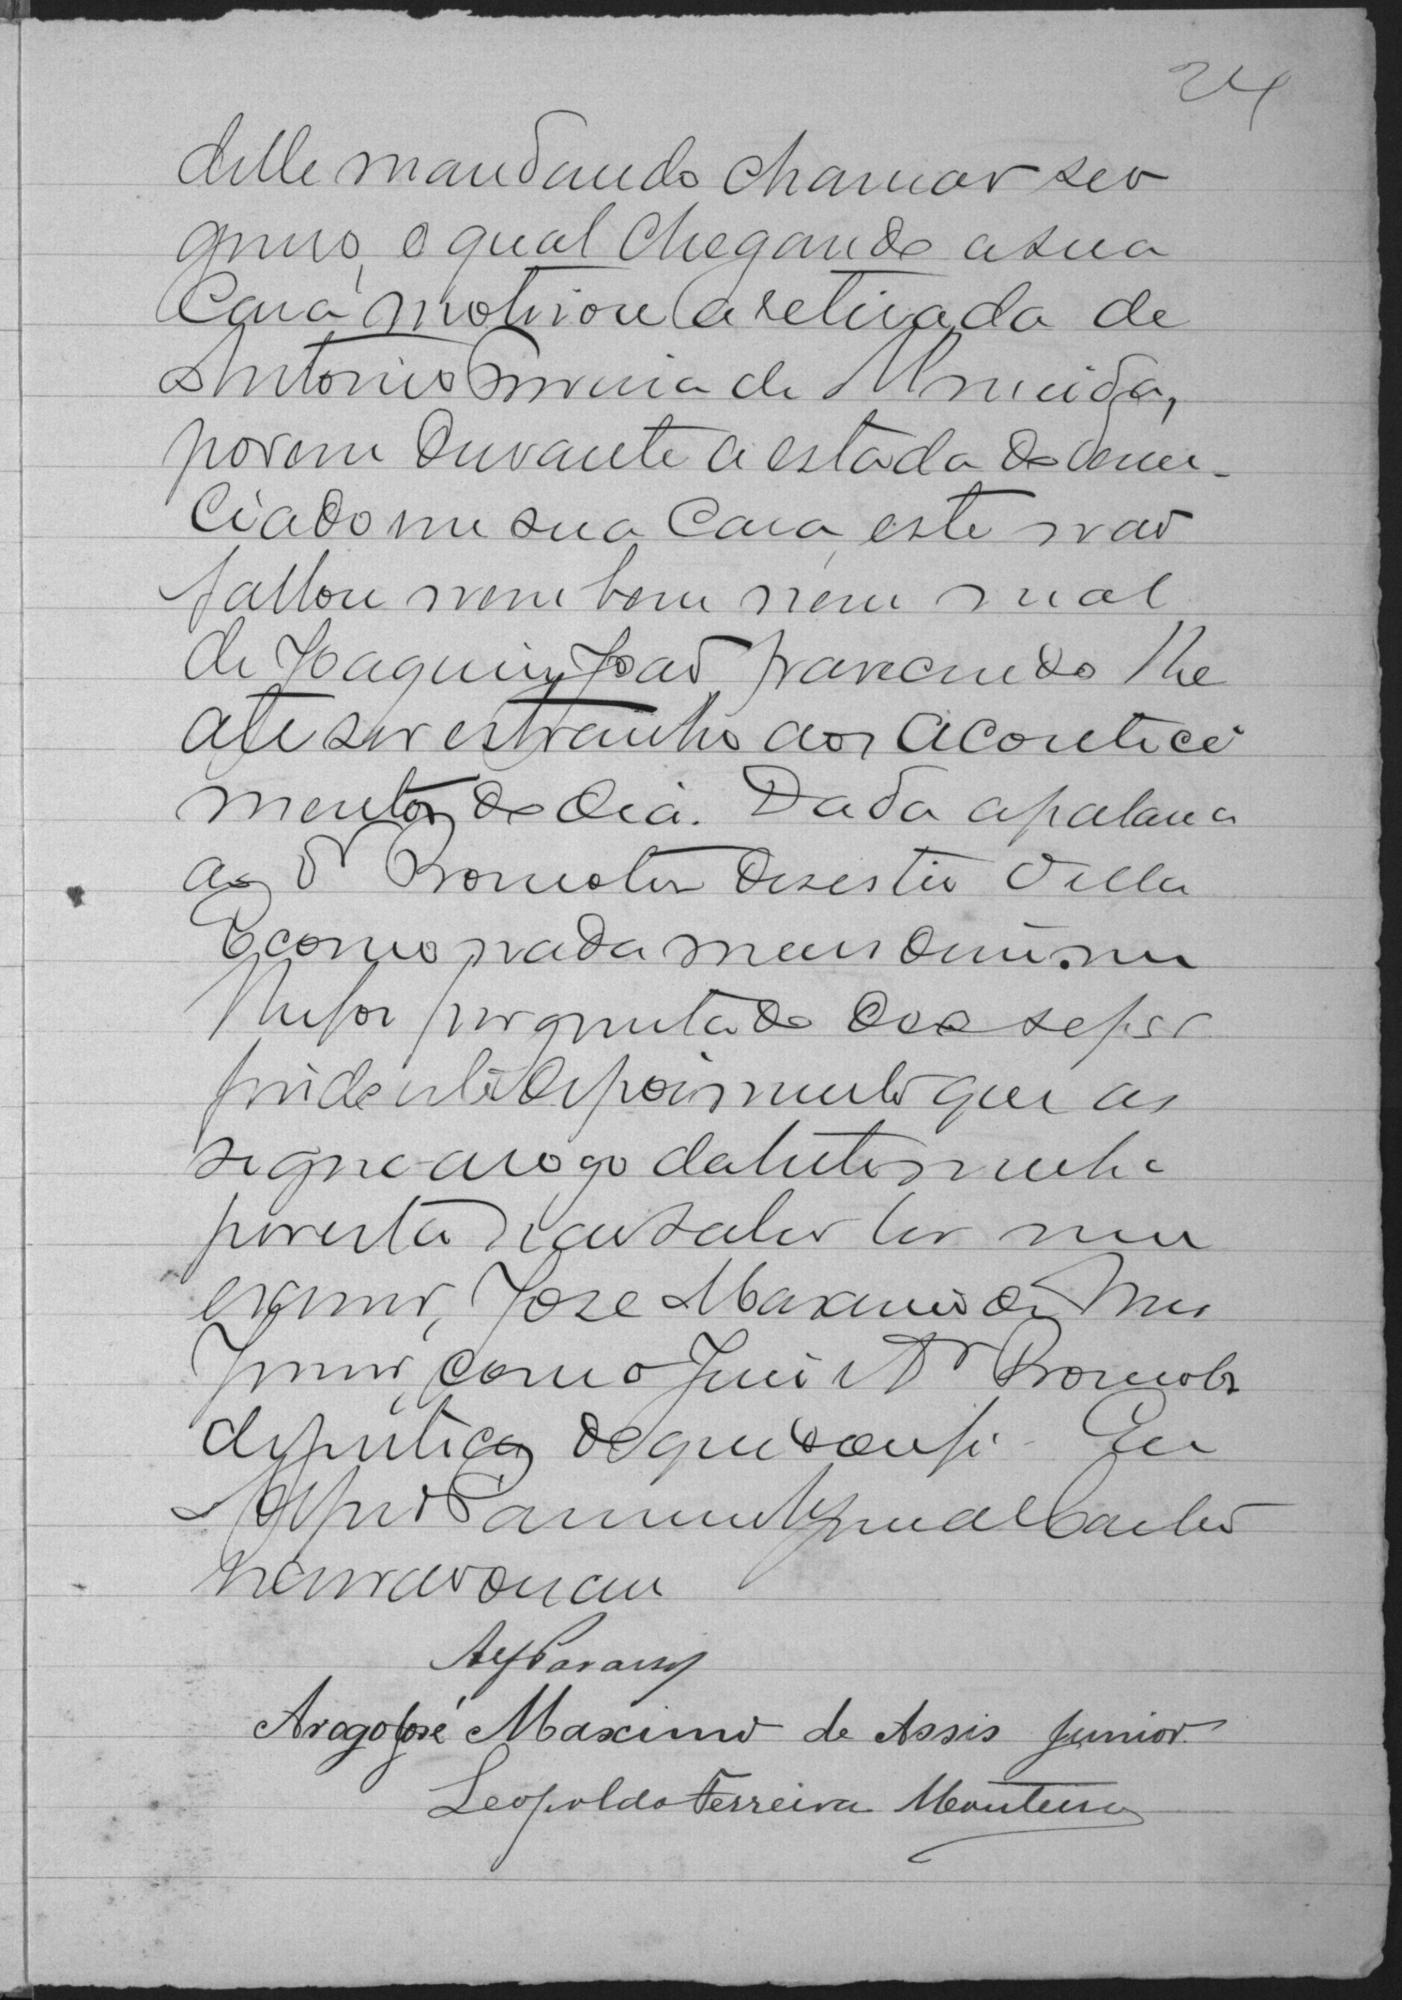 24
delle mandando chamar seu
genro, o qual chegando a sua
casa motivou a retirada de
Antonio Pereira de Almeida,
porem durante a estada do denun-
ciado em sua casa, este não
fallou nem bem nem mal
de Joaquim João parecendo lhe
até ser estranho aos aconteci
mentos do dia. Dada a palavra
ao Dr Promotor desestio della
E como nada mais disse nem
lhe foi perguntado deo se por
findo este depoimento que as
signa a rogo da testemunha
por esta não saber ler nem
escrever, José Maximo de Assis
Junior, com o Juiz e Dr Promotor
de justiça do que dou fé. Eu
escrivão
A rogo José Maximo de Assis Junior
Leopoldo Ferreira Monteiro